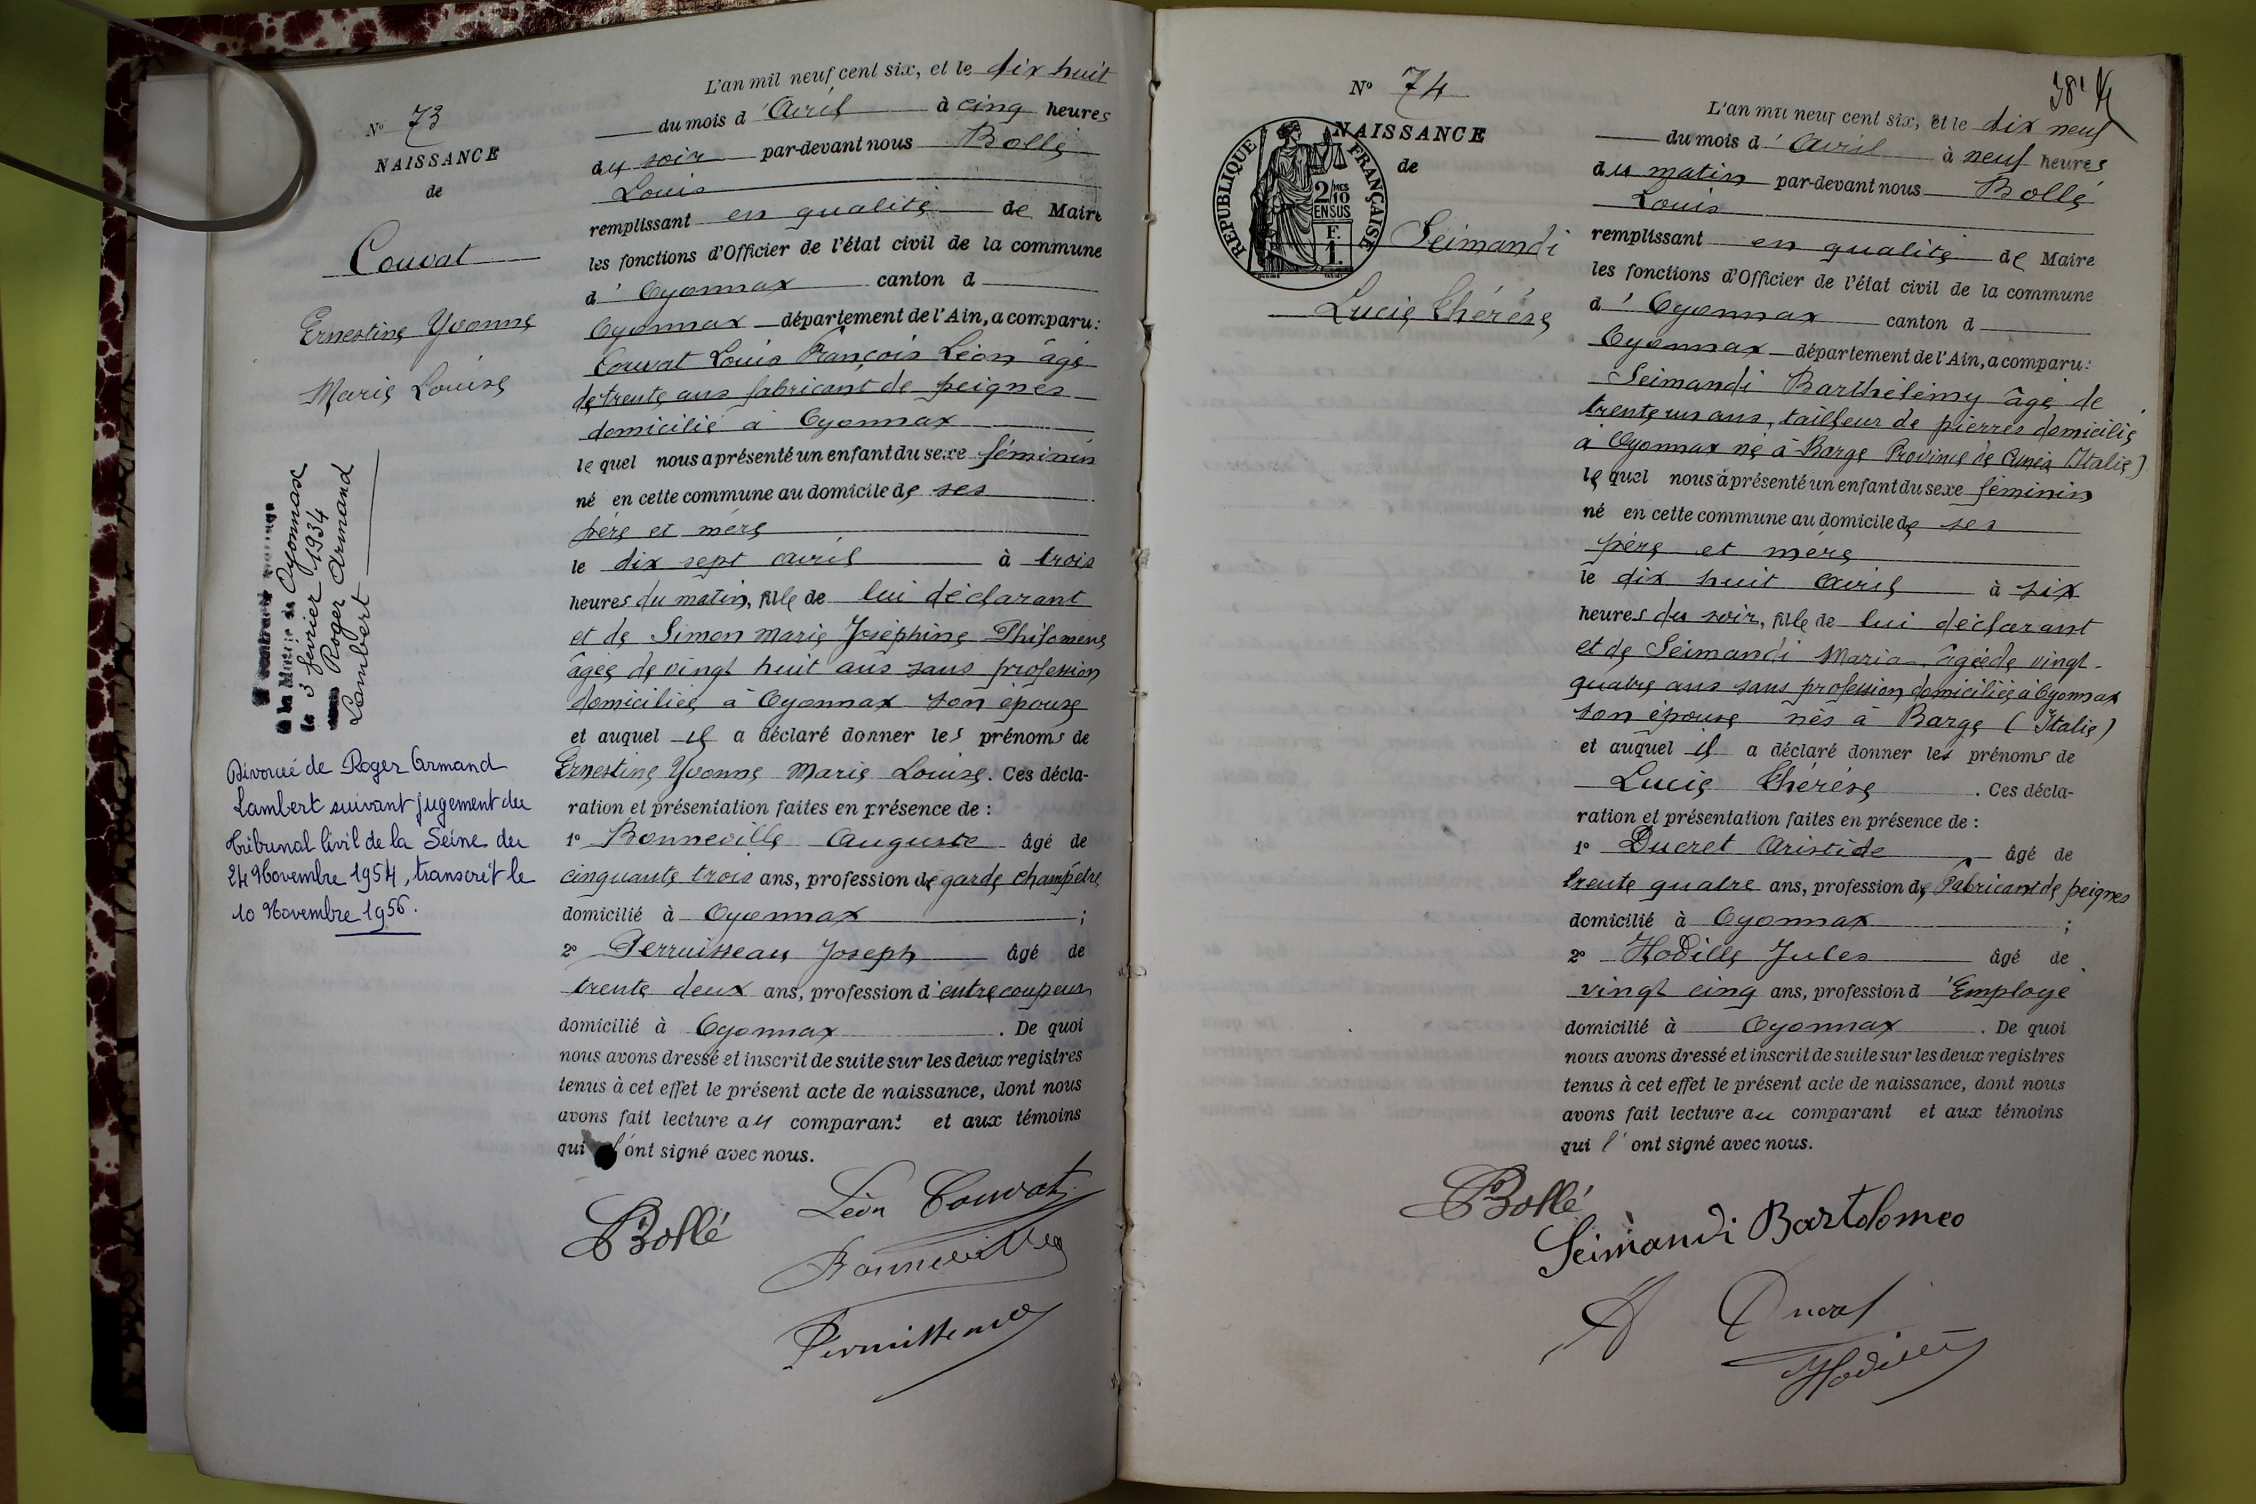 N° 73
NAISSANCE
de
Couvat
Ernestine Yvonne
Marie Louise
A contracté mariage
à la Mairie de Oyonnax
le 3 février 1934
avec Roger Armand
Lambert
Divorcée de Roger Armand
Lambert suivant jugement du
tribunal Civil de la Seine du
24 Novembre 1954, transcrit le
10 Novembre 1956.
L'an mil neuf cent six, et le dix huit
du mois d'Avril à cinq heures
du soir par-devant nous Bollé
Louis
remplissant en qualité de Maire
les fonctions d'Officier de l'état civil de la commune
d'Oyonnax canton d
Oyonnax département de l'Ain, a comparu :
Couvat Louis François Léon âgé
de trente ans fabricant de peignes
domicilié à Oyonnax
lequel nous a présenté un enfant du sexe féminin
né en cette commune au domicile de ses
père et mère
le dix sept avril à trois
heures du matin, fille de lui déclarant
et de Simon Marie Joséphine Philomène
âgée de vingt huit ans sans profession
domiciliée à Oyonnax son épouse
et auquel il a déclaré donner les prénoms de
Ernestine Yvonne Marie Louise. Ces décla-
ration et présentation faites en présence de :
1° Bonneville Auguste âgé de
cinquante trois ans, profession de garde champêtre
domicilié à Oyonnax ;
2° Perruisseau Joseph âgé de
trente deux ans, profession d'entrecoupeur
domicilié à Oyonnax . De quoi
nous avons dressé et inscrit de suite sur les deux registres
tenus à cet effet le présent acte de naissance, dont nous
avons fait lecture au comparant et aux témoins
qui l'ont signé avec nous.
Bollé
Léon Couvat
Bonneville
Perruisseau
38
N° 74
NAISSANCE
de
RÉPUBLIQUE FRANÇAISE
2/10 MES
EN SUS
F.
1.
Seimandi
Lucie Thérèse
L'an mil neuf cent six, et le dix neuf
du mois d'Avril à neuf heures
du matin par-devant nous Bollé
Louis
remplissant en qualité de Maire
les fonctions d'Officier de l'état civil de la commune
d'Oyonnax canton d
Oyonnax département de l'Ain, a comparu :
Seimandi Barthélemy âgé de
trente un ans, tailleur de pierres domicilié
à Oyonnax né à Barge Province de Cunéa (Italie)
lequel nous a présenté un enfant du sexe féminin
né en cette commune au domicile de ses
père et mère
le dix huit avril à six
heures du soir, fille de lui déclarant
et de Seimandi Maria âgée de vingt-
quatre ans sans profession domiciliée à Oyonnax
son épouse née à Barge (Italie)
et auquel il a déclaré donner les prénoms de
Lucie Thérèse . Ces décla-
ration et présentation faites en présence de :
1° Ducret Aristide âgé de
trente quatre ans, profession de Fabricant de peignes
domicilié à Oyonnax ;
2° Hodille Jules âgé de
vingt cinq ans, profession d'Employé
domicilié à Oyonnax . De quoi
nous avons dressé et inscrit de suite sur les deux registres
tenus à cet effet le présent acte de naissance, dont nous
avons fait lecture au comparant et aux témoins
qui l'ont signé avec nous.
Bollé
Seimandi Bartolomeo
A Ducret
Hodille